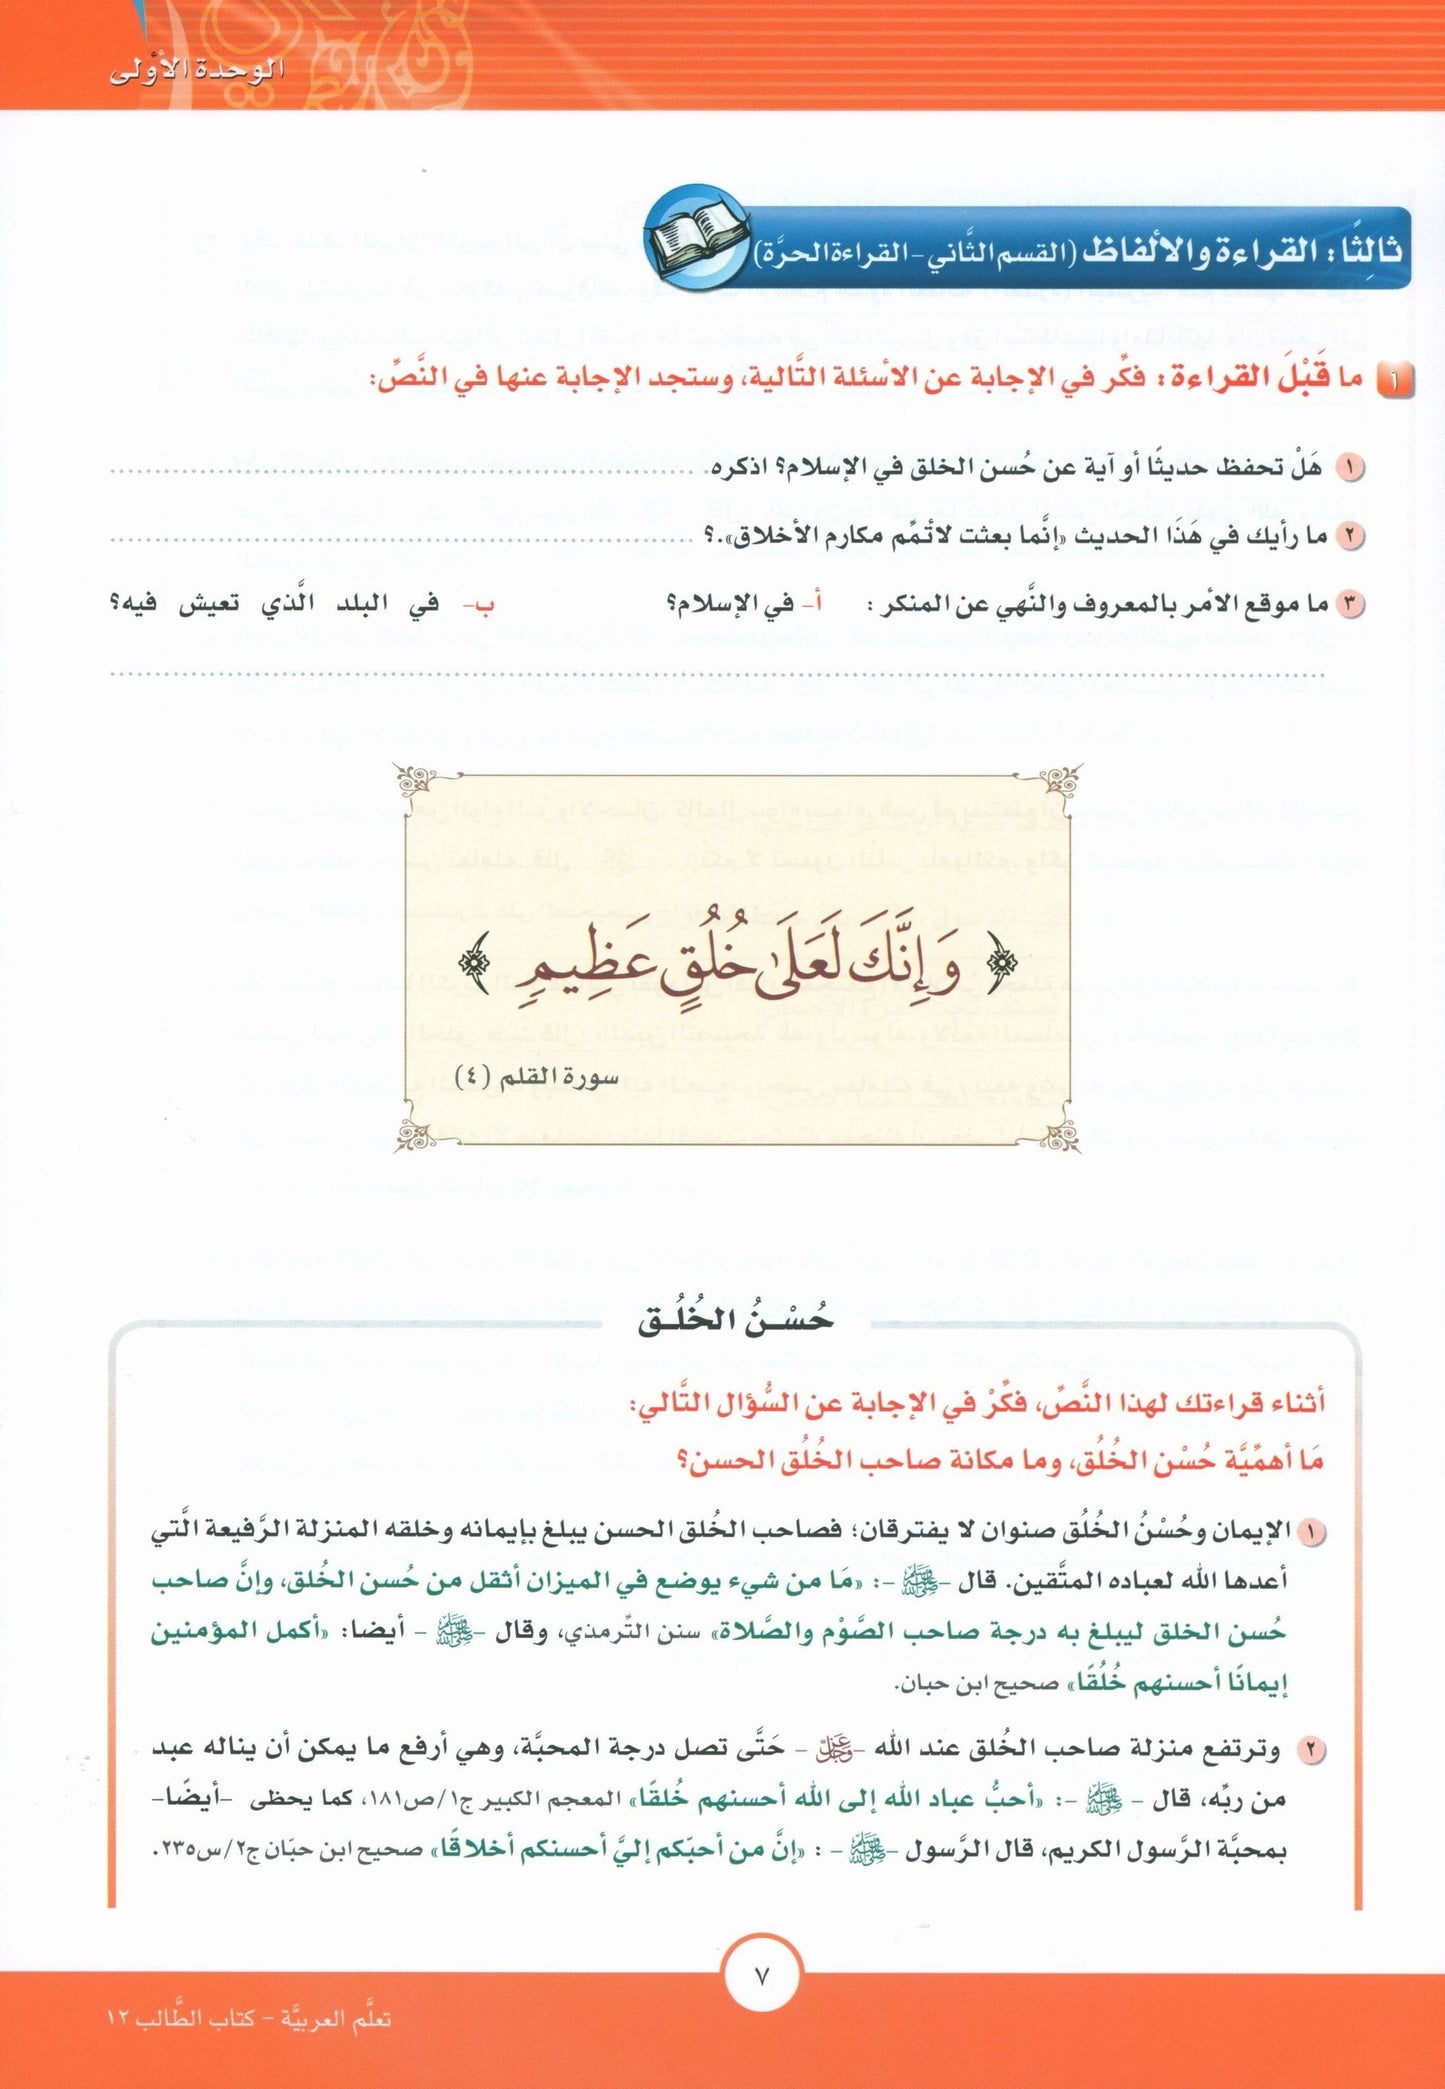 الوحدة الأولى
ثالِثًا: القراءة والألفاظ (القسم الثَّاني - القراءة الحرَّة)
١ ما قَبْلَ القراءة: فكِّر في الإجابة عن الأسئلة التَّالية، وستجد الإجابة عنها في النَّصِّ:
١ هَلْ تحفظ حديثًا أو آية عن حُسن الخلق في الإسلام؟ اذكره
٢ ما رأيك في هَذَا الحديث «إنَّما بعثت لأتمِّم مكارم الأخلاق».؟
٣ ما موقع الأمر بالمعروف والنَّهي عن المنكر: أ- في الإسلام؟ ب- في البلد الَّذي تعيش فيه؟
﴿وَإِنَّكَ لَعَلَىٰ خُلُقٍ عَظِيمٍ﴾
سورة القلم (٤)
حُسْـنُ الخُلُـق
أثناء قراءتك لهذا النَّصِّ، فكِّرْ في الإجابة عن السُّؤال التَّالي:
مَا أهمِّيَّة حُسْن الخُلُق، وما مكانة صاحب الخُلُق الحسن؟
١ الإيمان وحُسْنُ الخُلُق صنوان لا يفترقان؛ فصاحب الخُلق الحسن يبلغ بإيمانه وخلقه المنزلة الرَّفيعة الَّتي
أعدها الله لعباده المتَّقين. قال -ﷺ-: «مَا من شيء يوضع في الميزان أثقل من حُسن الخُلق، وإنَّ صاحب
حُسن الخلق ليبلغ به درجة صاحب الصَّوْم والصَّلاة» سنن التِّرمذي، وقال -ﷺ- أيضا: «أكمل المؤمنين
إيمانًا أحسنهم خُلُقًا» صحيح ابن حبان.
٢ وَترتفع منزلة صاحب الخُلق عند الله -عَزَّ وَجَلَّ- حَتَّى تصل درجة المحبَّة، وهي أرفع ما يمكن أن يناله عبد
من ربِّه، قال - ﷺ -: «أحبُّ عباد الله إلى الله أحسنهم خُلقًا» المعجم الكبير ج١/ص١٨١، كما يحظى -أيضًا-
بمحبَّة الرَّسول الكريم، قال الرَّسول -ﷺ- : «إنَّ من أحبّكم إليَّ أحسنكم أخلاقًا» صحيح ابن حبّان ج٢/س٢٣٥.
٧
تعلَّم العربيَّة - كتاب الطَّالب ١٢